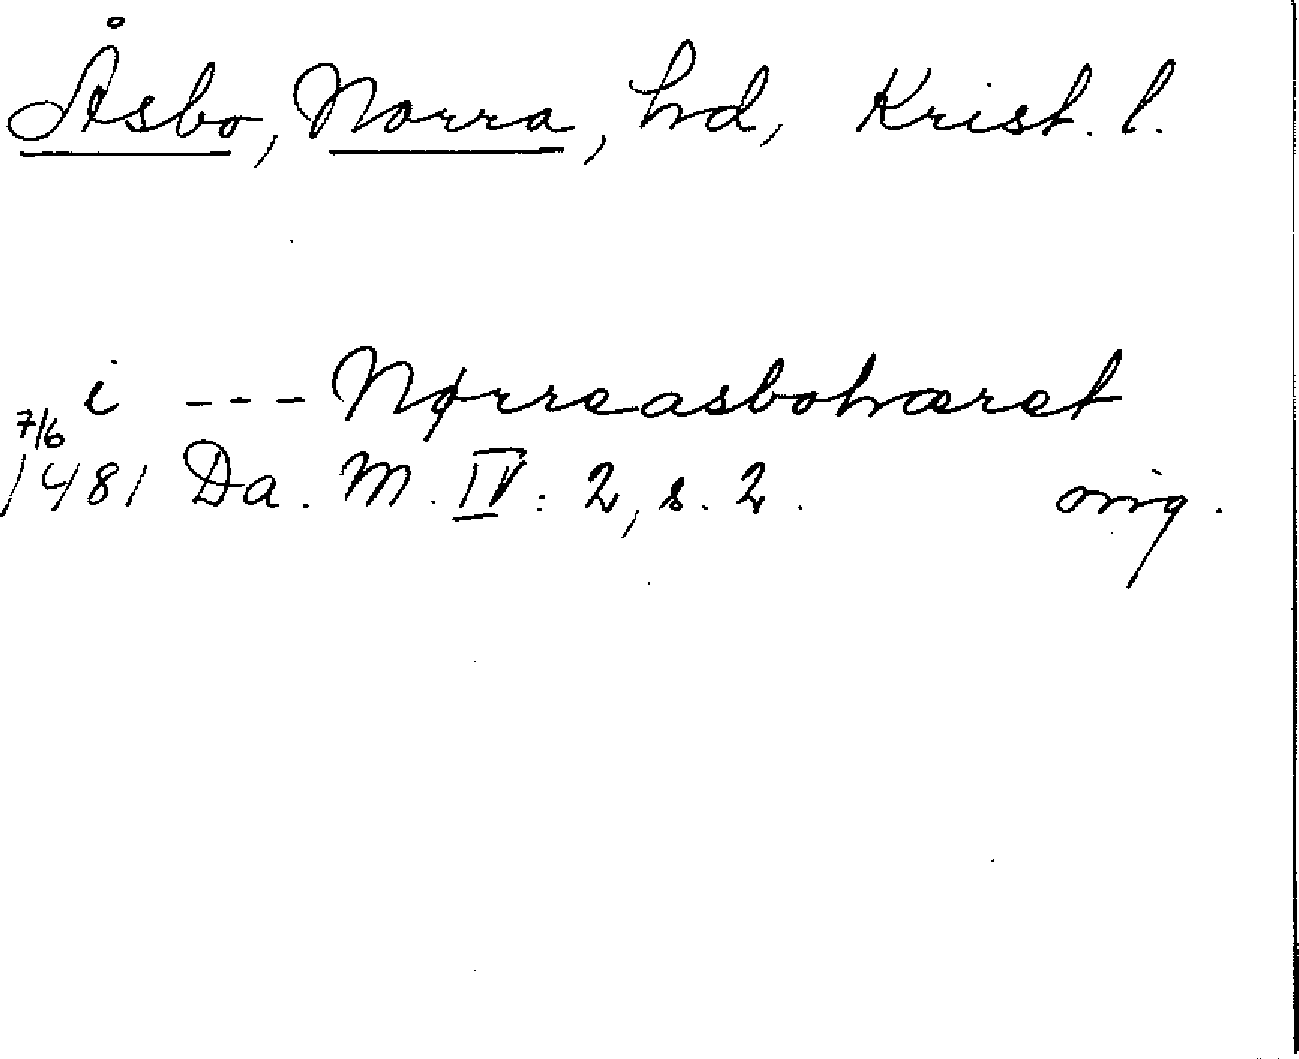 Åsbo, Norra, hd, Krist. l.
i --- Nørreasbohæret
7/6
1481 Da. M. IV: 2, s. 2. orig.